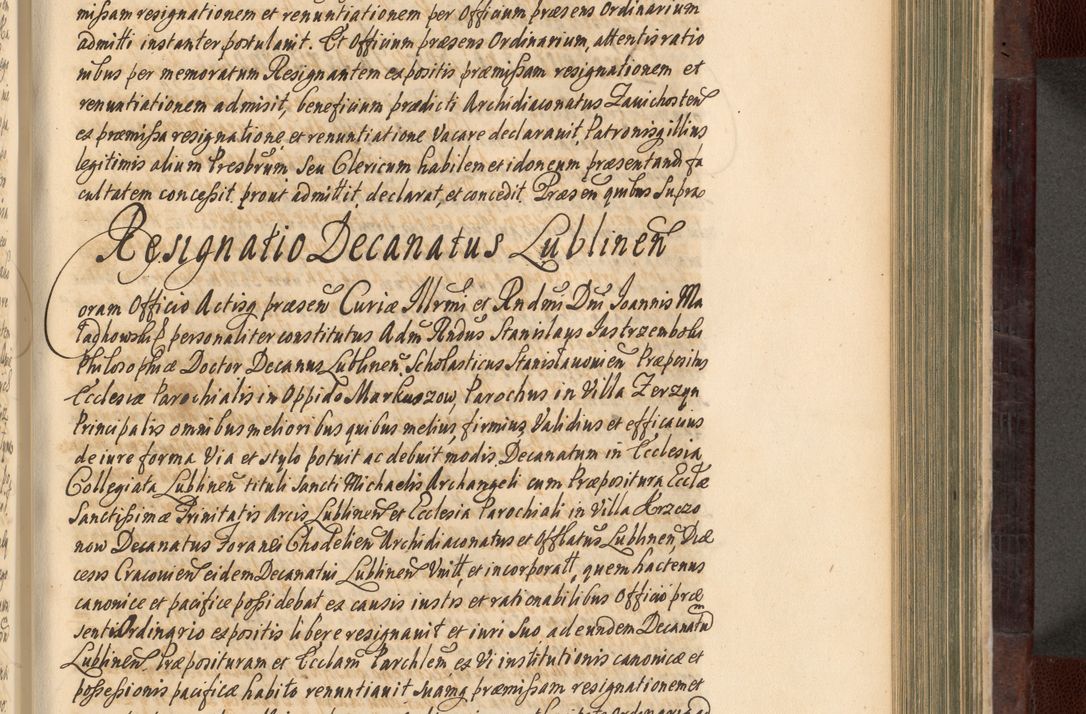 missam resignationem et renuntiationem per Officium præsens Ordinarium
admitti instanter postulavit. Et Officium præsens Ordinarium, attentis ratio
nibus per memoratum Resignantem expositis præmissam resignationem et
renuntiationem admisit, beneficium prædicti Archidiaconatus Zavichosten̄
ex præmissa resignatione et renuntiatione vacare declaravit, Patronisq illius
legitimis alium Presbrum seu Clericum habilem et idoneum præsentandi fa
cultatem concessit prout admittit, declarat, et concedit. Præsen̄ quibus supra
Resignatio Decanatus Lublinen̄
Coram Officio Actisq præsen̄ Curiæ Illrmi et Rndmi Dni Joannis Ma
łachowski personaliter constitutus Adm Rndus Stanislaus Jastrzembski
Philosophiæ Doctor Decanus Lublinen̄. Scholasticus Stanislavovien̄ Præpositus
Ecclesiæ Parochialis in Oppido Markuszow, Parochus in Villa Zerzyn
Principalis omnibus melioribus quibus melius, firmius, validius et efficacius
de iure forma via et stylo potuit ac debuit modis, Decanatum in Ecclesia
Collegiata Lublinen̄ tituli Sancti Michaelis Archangeli cum Præpositura Eccłæ
Sanctissimæ Trinitatis Arcis Lublinen̄ et Ecclesia Parochiali in Villa Krzczo
now Decanatus Foranei Chodelien̄ Archidiaconatus et Offlatus Lublinen̄, Diæ
cesis Cracovien̄ eidem Decanatui Lublinen̄ Unitt, et incorporatt, quem hactenus
canonice et pacifice possidebat ex causis iustis et rationabilibus Officio præ
senti Ordinario expositis libere resignavit et iuri suo, ad eundem Decanatū
Lublinen̄. Præposituram et Ecclam Parchlem ex vi institutionis canonicæ et
possessionis pacificæ habito renuntiavit suamq præmissam resignationem et